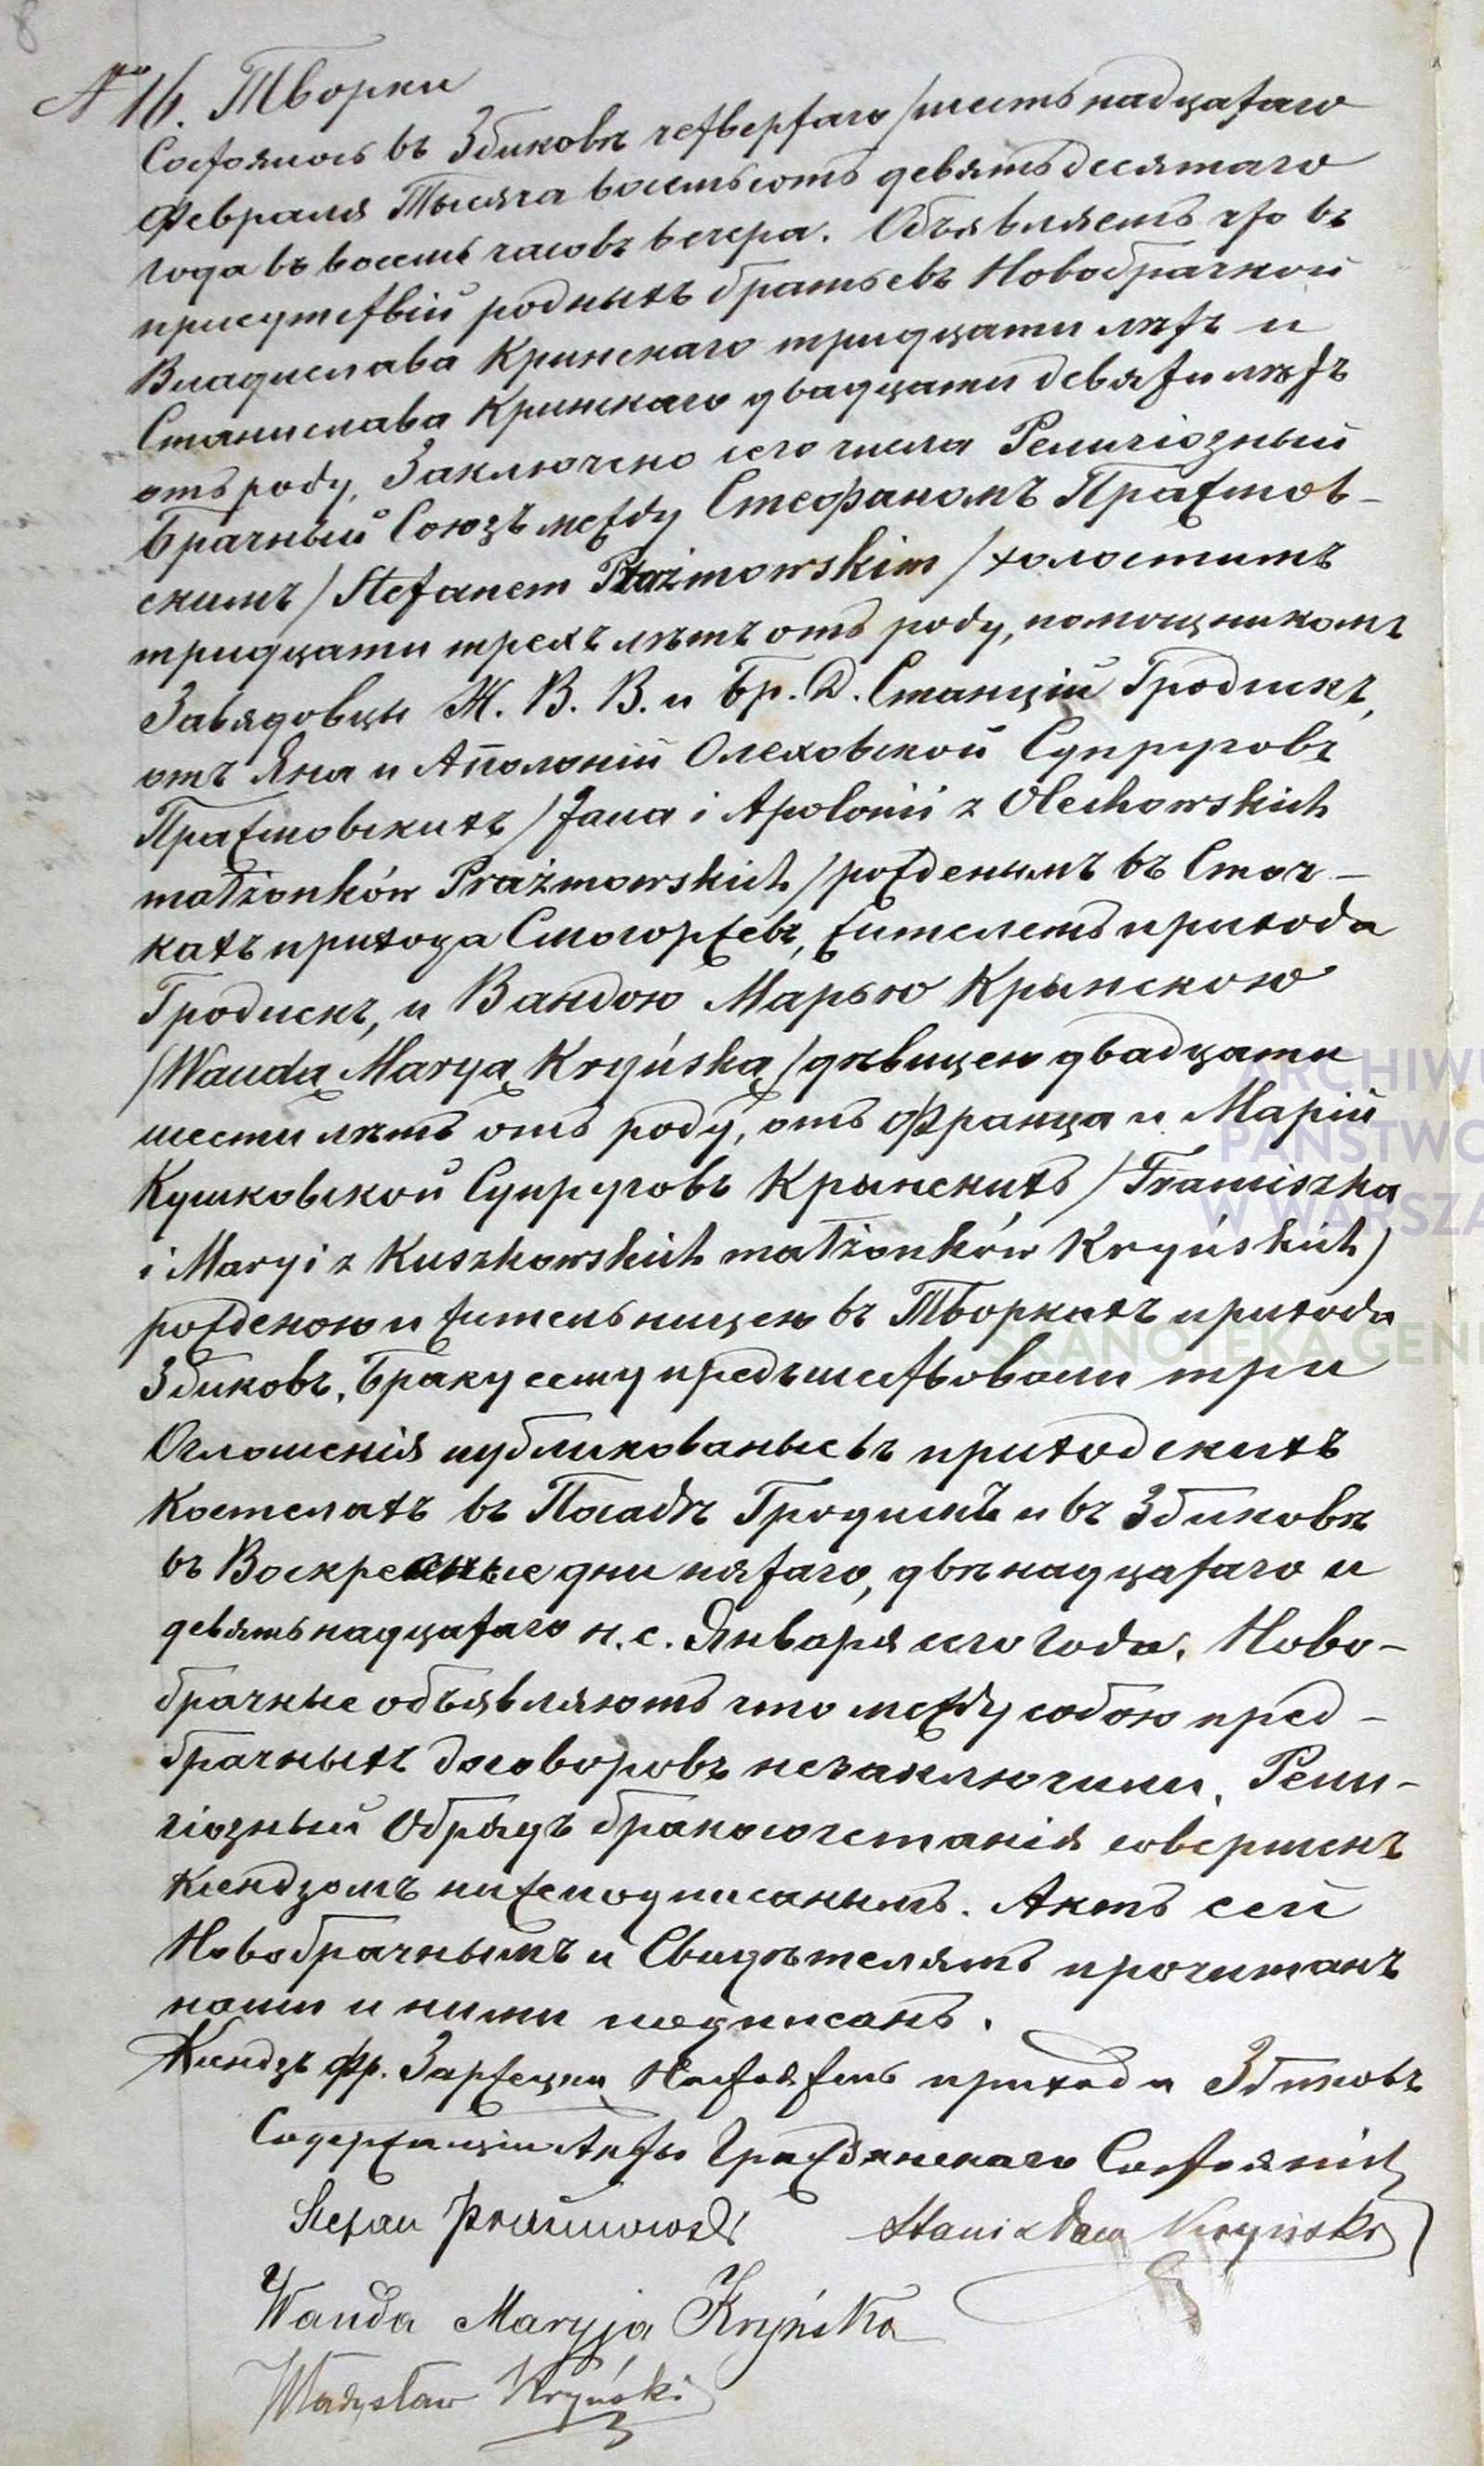 8
№ 16. Творки
Состоялось въ Збиковѣ четвертаго/шестьнадцатаго
Февраля Тысяча восемьсотъ девятьдесятаго
года въ восемь часовъ вечера. Объявляемъ что въ
присутствіи родныхъ братьевъ Новобрачной
Владислава Кринскаго тридцати лѣтъ и
Станислава Кринскаго двадцати девяти лѣтъ
отъ роду, Заключено сего числа Религіозный
Брачный Союзъ между Стефаномъ Пражмов-
скимъ /Stefanem Prażmowskim/ холостымъ
тридцати трехъ лѣтъ отъ роду, помощникомъ
Завядовцы Ж. В. В. и Бр. Д. Станціи Гродискъ,
отъ Яна и Аполоніи Олеховской Супруговъ
Пражмовскихъ /Jana i Apolonii z Olechowskich
małżonków Prażmowskich/ рожденымъ въ Сточ-
кахъ прихода Смогоржевъ, жителемъ прихода
Гродискъ, и Вандою Марью Крынскою
/Wandą Maryą Kryńską/ дѣвицею двадцати
шести лѣтъ отъ роду, отъ Франца и Маріи
Кушковской Супруговъ Крынскихъ /Franciszka
i Maryi z Kuszkowskich małżonków Kryńskich)
рожденою и жительницею въ Творкахъ прихода
Збиковъ. Браку сему предъшествовали три
Оглошенія публикованые въ приходскихъ
Костелахъ въ Посадѣ Гродискъ и въ Збиковѣ
въ Воскресные дни пятаго, двѣнадцатаго и
девятьнадцатаго н. с. Января сего года. Ново-
брачные объявляютъ что между собою пред-
брачныхъ договоровъ незаключили. Рели-
гіозный Обрядъ бракосочетанія совершенъ
Ксендзомъ нижеподписанымъ. Актъ сей
Новобрачнымъ и Свидѣтелямъ прочитанъ
нами и ними подписанъ.
Ксендзъ Фр. Заржецки Настоятель прихода Збиковъ
Содержащій Акты Гражданскаго Состоянія
Stefan Prażmowski Stanisław Kryński
Wanda Maryja Kryńska
Władysław Kryński
ARCHIWU
PAŃSTWO
W WARSZA
SKANOTEKA.GEN